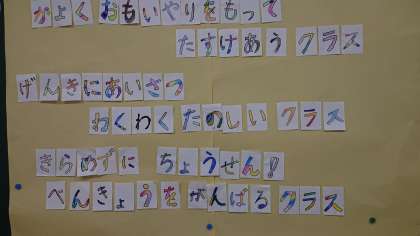 なかよく おもいやりをもって
たすけあう クラス
げんきにあいさつ
わくわく たのしい クラス
きらめずに ちょうせん!
べんきょうをがんばる クラス